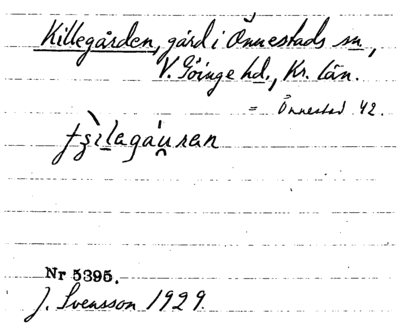 Killegården, gård i Önnestads sn,
V. Göinge hd., Kr. län.
= Önnestad 42.
Nr 5395.
J. Svensson 1929.